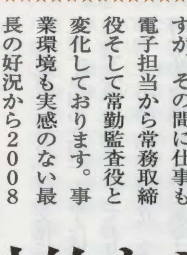 すが、その間に仕事も
電子担当から常務取締
役そして常勤監査役と
変化しております。事
業環境も実感のない最
長の好況から2008